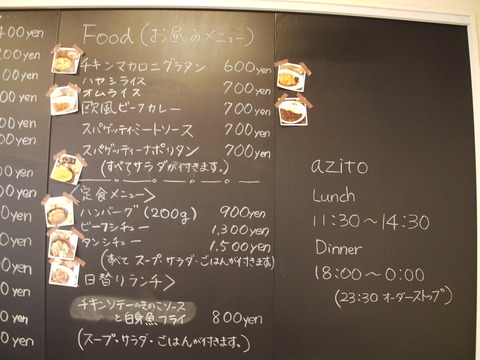 400yen
Food (お昼のメニュー)
チキンマカロニグラタン 600yen
ハヤシライス 700yen
オムライス
欧風ビーフカレー 700yen
スパゲッティーミートソース 700yen
スパゲッティーナポリタン 700yen
(すべてサラダが付きます。)
<定食メニュー>
ハンバーグ(200g) 900yen
ビーフシチュー 1,300yen
タンシチュー 1,500yen
(すべてスープ・サラダ・ごはんが付きます)
日替りランチ>
チキンソテーのきのこソース
と白身魚フライ 800yen
(スープ・サラダ・ごはんが付きます。)
azito
Lunch
11:30〜14:30
Dinner
18:00〜0:00
(23:30 オーダーストップ)